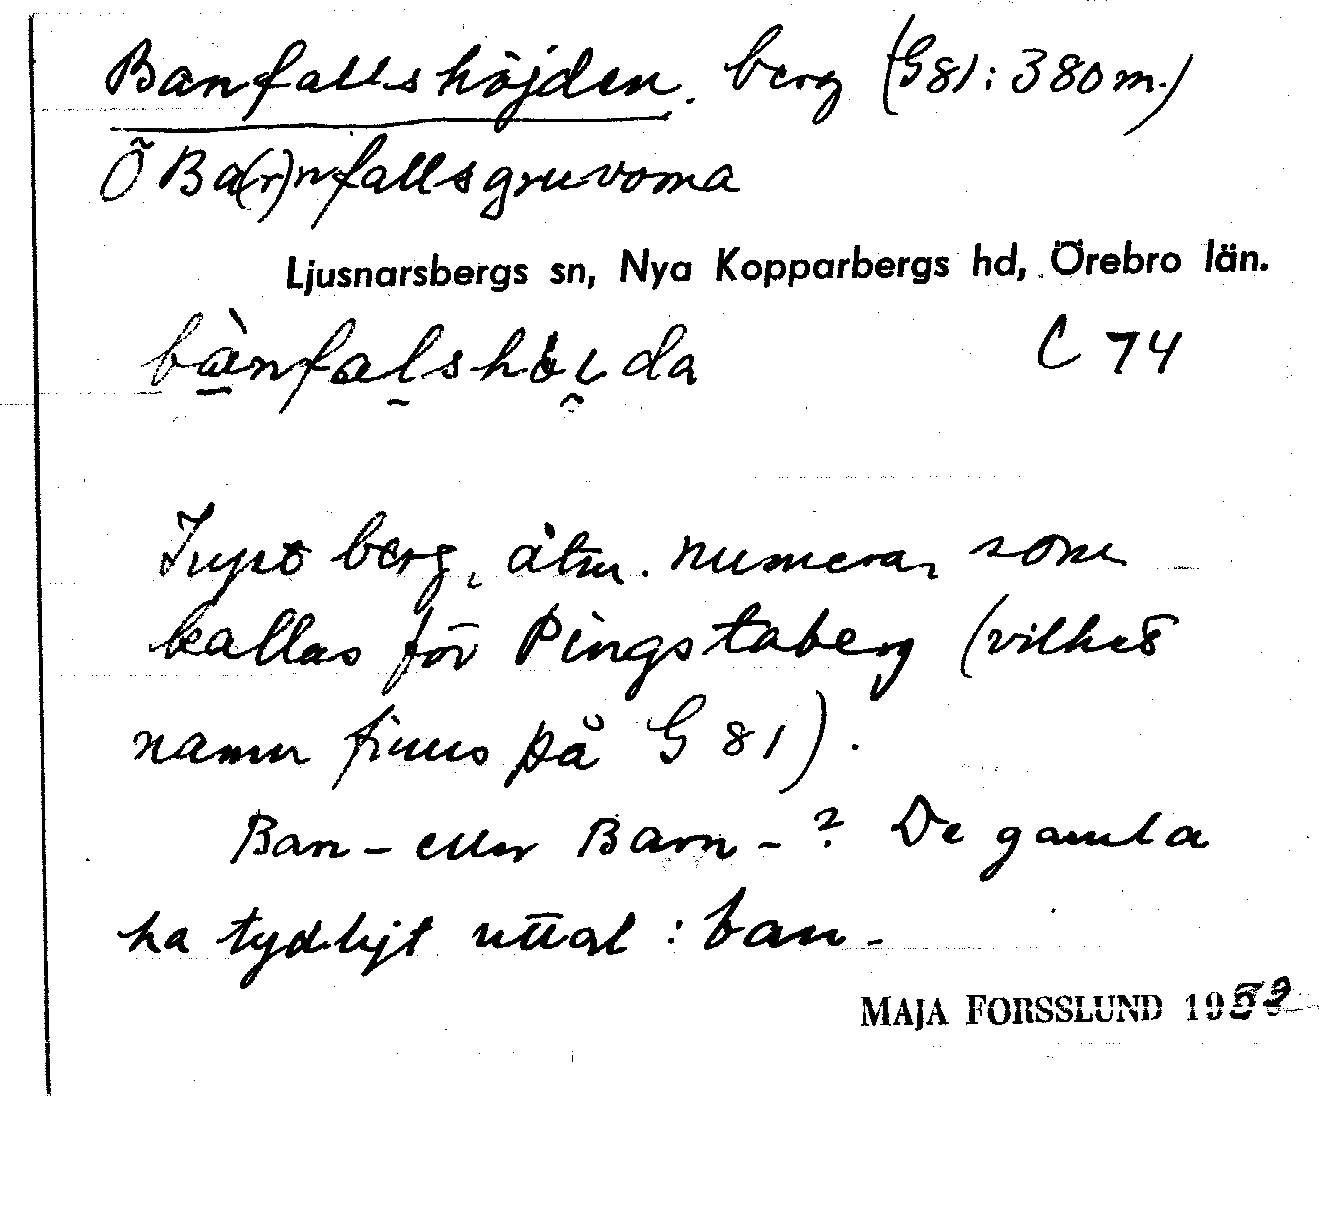 Banfallshöjden. berg (G81: 380 m.)
Ö Ba(r)nfallsgruvorna
Ljusnarsbergs sn, Nya Kopparbergs hd, Örebro län.
bànfalshöi̯da C 74
berg, åtm. numera, som
kallas för Pingstaberg (vilket
namn finns på G 81).
Ban- eller Barn-? De gamla
ha tydligt uttal: ban-
MAJA FORSSLUND 1959